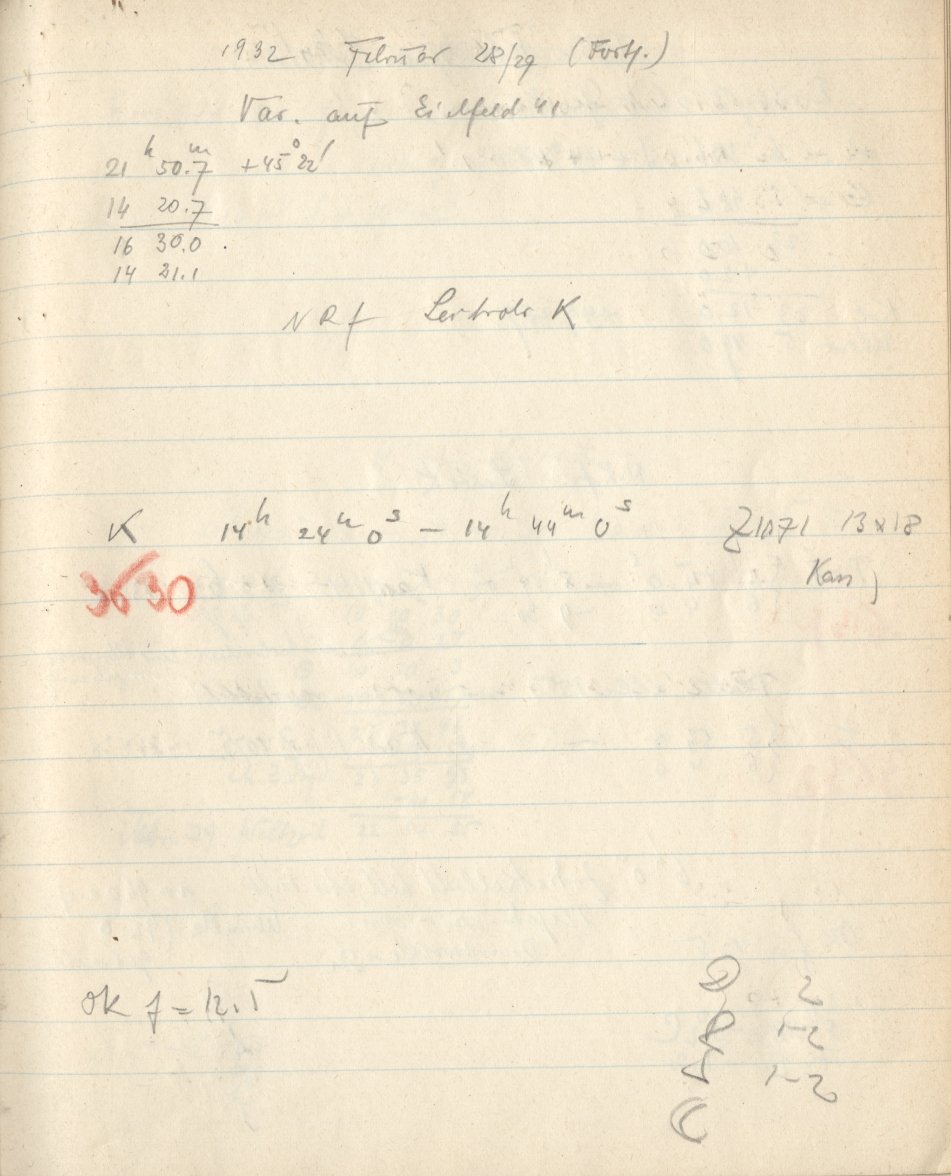 1932 Februar 28/29 (Forts.)
Var. auf Eichfeld 41
21ʰ 50.7ᵐ +45° 22'
14 20.7
16 30.0
14 21.1
NRf K
K 14ʰ 24ᵐ 0ˢ – 14ʰ 44ᵐ 0ˢ Z1071 13x18
3630
OK f = 12.5
D 2
1-2
J 1-2